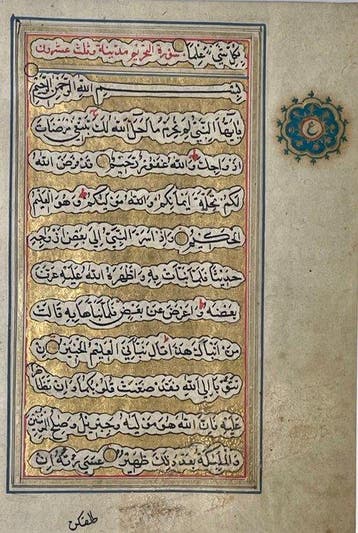 شَيْءٍ عِلْمًا سورة التحريم مدنية وثلث عشر
بِسْمِ اللهِ الرَّحْمٰنِ الرَّحِيمِ
يَا أَيُّهَا النَّبِيُّ لِمَ تُحَرِّمُ مَا أَحَلَّ اللهُ لَكَ تَبْتَغِي مَرْضَاتَ
أَزْوَاجِكَ وَاللهُ غَفُورٌ رَحِيمٌ قَدْ فَرَضَ اللهُ
لَكُمْ تَحِلَّةَ أَيْمَانِكُمْ وَاللهُ مَوْلٰيكُمْ وَهُوَ الْعَلِيمُ
الْحَكِيمُ وَإِذْ أَسَرَّ النَّبِيُّ إِلَىٰ بَعْضِ أَزْوَاجِهِ
حَدِيثًا فَلَمَّا نَبَّأَتْ بِهِ وَأَظْهَرَهُ اللهُ عَلَيْهِ عَرَّفَ
بَعْضَهُ وَأَعْرَضَ عَنْ بَعْضٍ فَلَمَّا نَبَّأَهَا بِهِ قَالَتْ
مَنْ أَنْبَأَكَ هٰذَا قَالَ نَبَّأَنِيَ الْعَلِيمُ الْخَبِيرُ إِنْ
تَتُوبَا إِلَى اللهِ فَقَدْ صَغَتْ قُلُوبُكُمَا وَإِنْ تَظَاهَرَا
عَلَيْهِ فَإِنَّ اللهَ هُوَ مَوْلٰيهُ وَجِبْرِيلُ وَصَالِحُ الْمُؤْمِنِينَ
وَالْمَلٰئِكَةُ بَعْدَ ذٰلِكَ ظَهِيرٌ عَسَىٰ رَبُّهُ إِنْ
طلقكن
ع